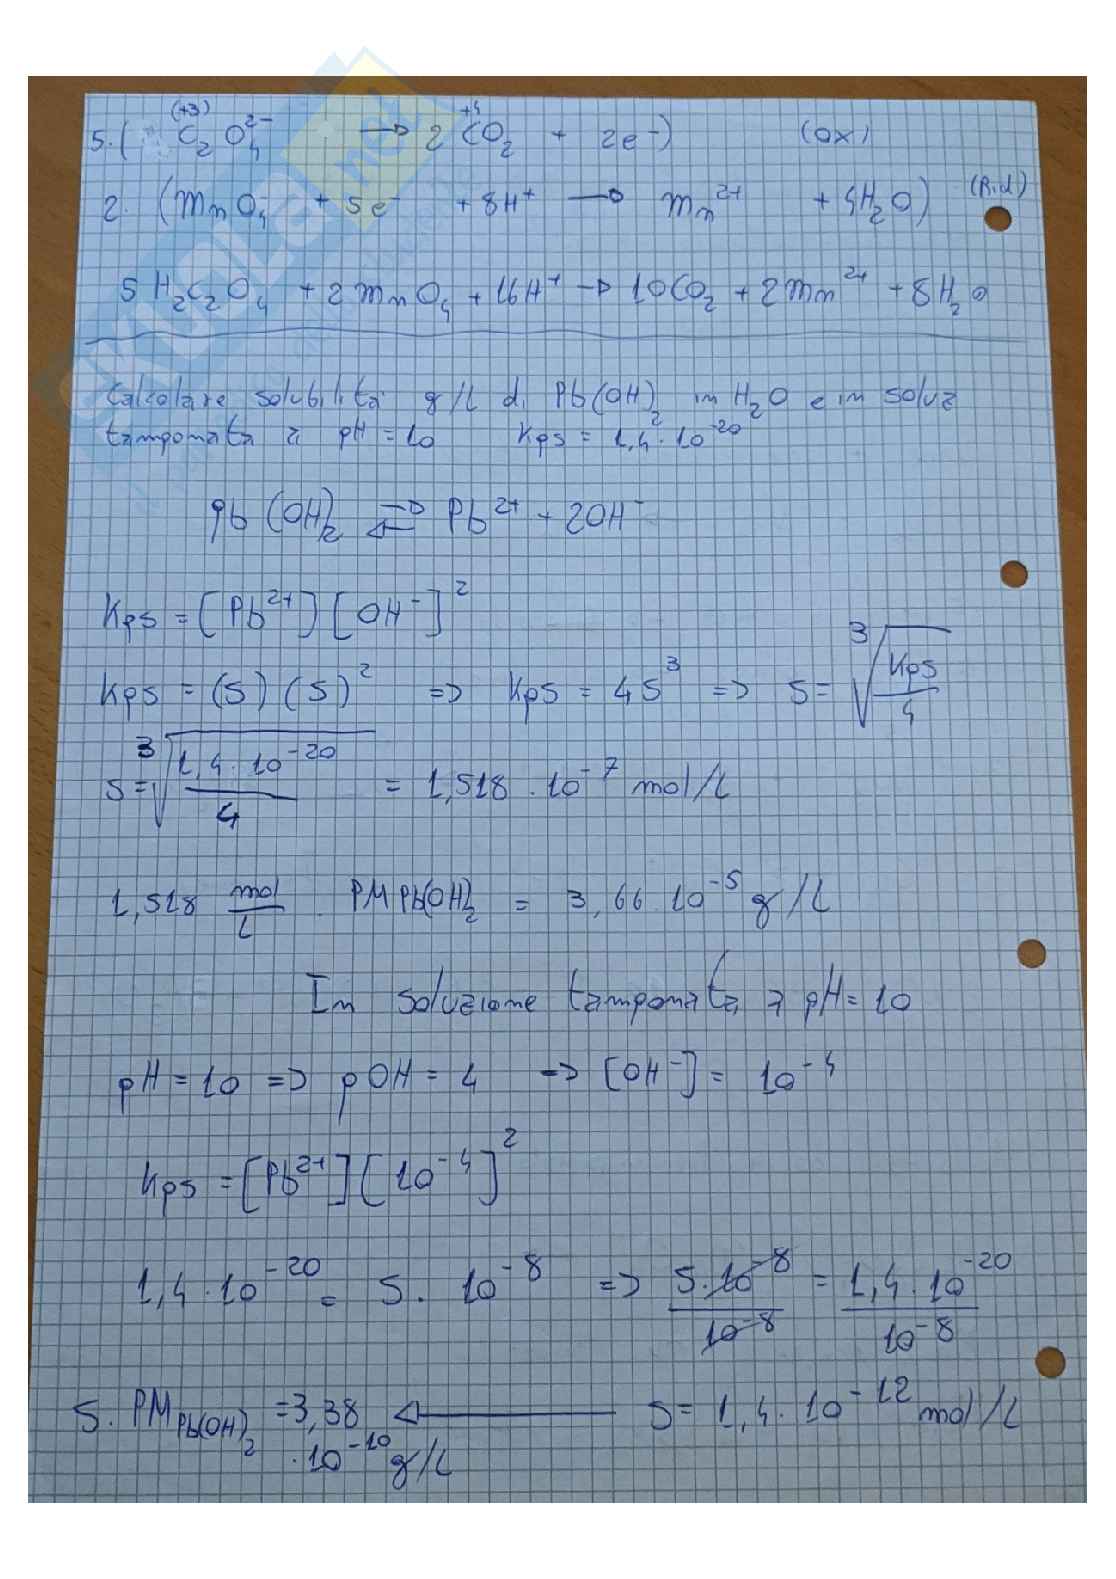 (+3) +4
5.( C₂O₄²⁻ → 2 CO₂ + 2e⁻) (Ox)
2. (MnO₄⁻ + 5e⁻ + 8H⁺ → Mn²⁺ + 4H₂O) (Rid)
5 H₂C₂O₄ + 2 MnO₄ + 16H⁺ → 10CO₂ + 2Mn²⁺ + 8H₂O
Calcolare solubilità g/L di Pb(OH)₂ in H₂O e in soluz
tamponata a pH = 10 Kps = 1,4 · 10⁻²⁰
Pb(OH)₂ ⇌ Pb²⁺ + 2OH⁻
Kps = [Pb²⁺] [OH⁻]²
Kps = (s) (s)² => Kps = 4s³ => s = ³√(Kps/4)
s = ³√(1,4 · 10⁻²⁰/4) = 1,518 · 10⁻⁷ mol/L
1,518 mol/L · PM Pb(OH)₂ = 3,66 · 10⁻⁵ g/L
In soluzione tamponata a pH = 10
pH = 10 => pOH = 4 => [OH⁻] = 10⁻⁴
Kps = [Pb²⁺] [10⁻⁴]²
1,4 · 10⁻²⁰ = S · 10⁻⁸ => S · 10⁻⁸/10⁻⁸ = 1,4 · 10⁻²⁰/10⁻⁸
S = 1,4 · 10⁻¹² mol/L
S · PM Pb(OH)₂ = 3,38
· 10⁻¹⁰ g/L
SKUOLA.net